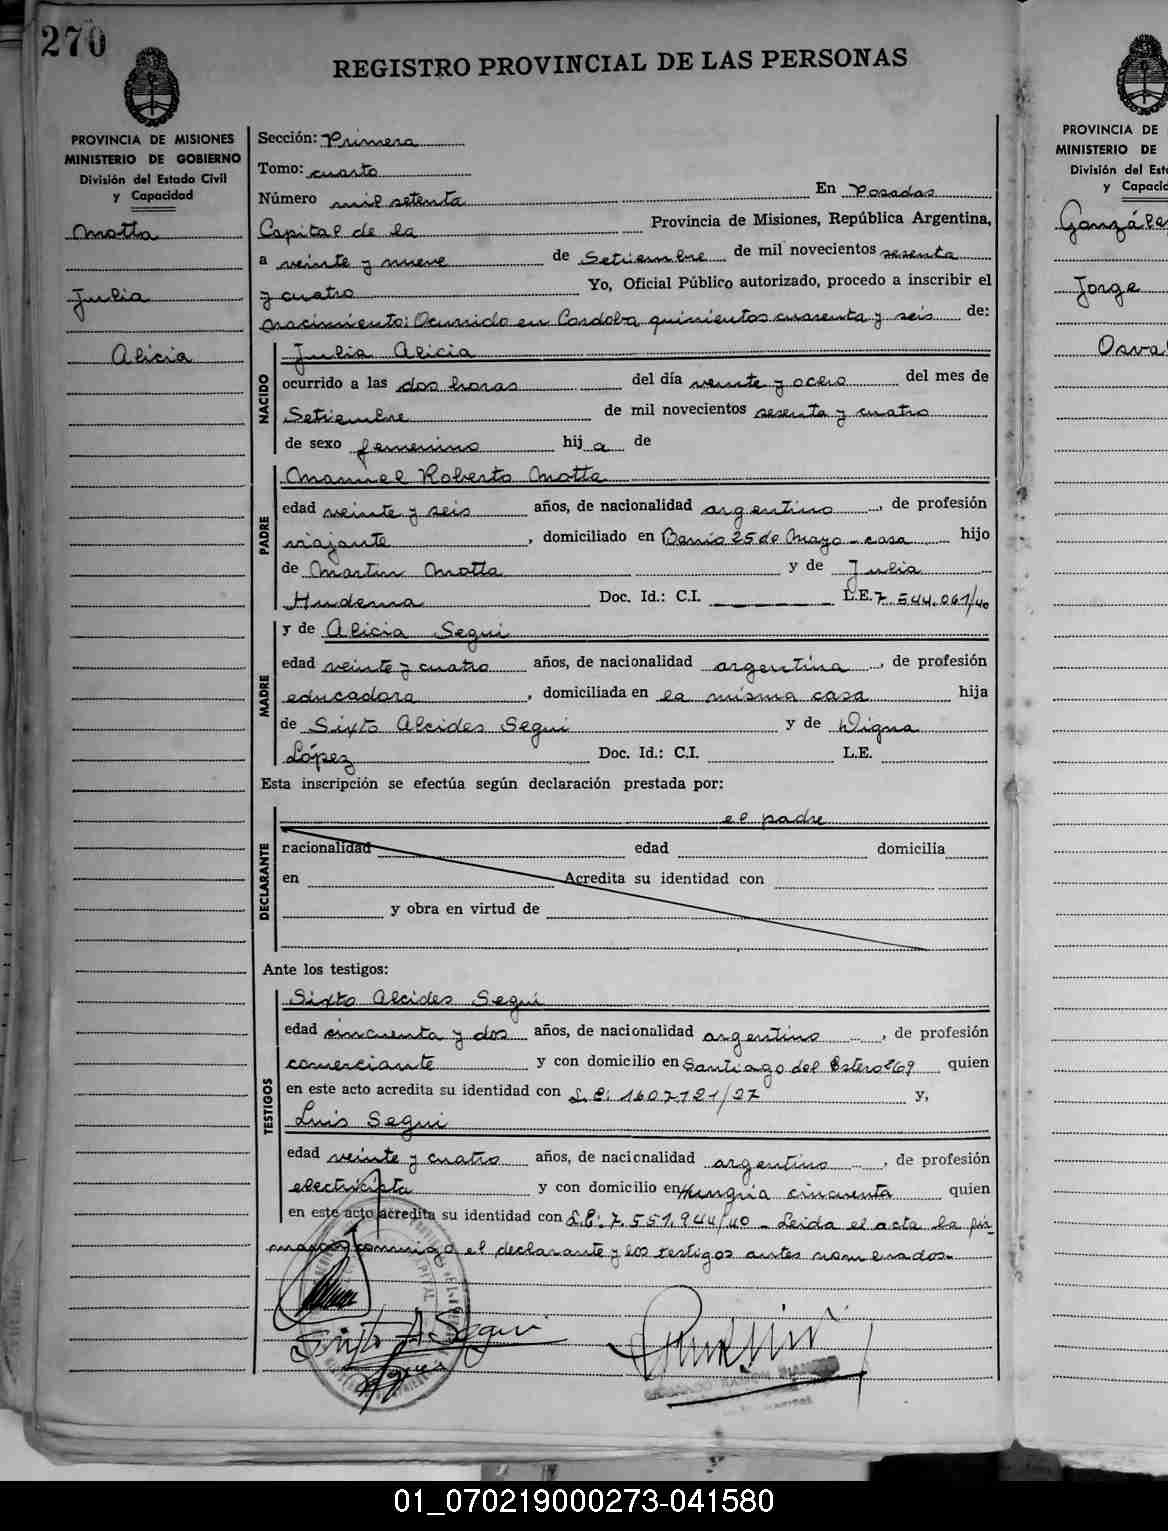 270
REGISTRO PROVINCIAL DE LAS PERSONAS
PROVINCIA DE MISIONES
MINISTERIO DE GOBIERNO
División del Estado Civil
y Capacidad
Motta
Julia
Alicia
Sección: Primera
Tomo: cuarto
Número mil setenta En Posadas
Capital de la Provincia de Misiones, República Argentina,
a veinte y nueve de Setiembre de mil novecientos sesenta
y cuatro Yo, Oficial Público autorizado, procedo a inscribir el
nacimiento: Ocurrido en Cordoba quinientos cuarenta y seis de:
NACIDO
Julia Alicia
ocurrido a las dos horas del día veinte y ocho del mes de
Setiembre de mil novecientos sesenta y cuatro
de sexo femenino hija de
PADRE
Manuel Roberto Motta
edad veinte y seis años, de nacionalidad argentino, de profesión
viajante, domiciliado en Barrio 25 de Mayo - casa hijo
de Martin Motta y de Julia
Doc. Id.: C.I. L.E. 7.544.061/40
MADRE
y de Alicia Segui
edad veinte y cuatro años, de nacionalidad argentina, de profesión
educadora, domiciliada en la misma casa hija
de Sixto Alcides Segui y de Digna
López Doc. Id.: C.I. L.E.
Esta inscripción se efectúa según declaración prestada por:
DECLARANTE
el padre
nacionalidad edad domicilia
en Acredita su identidad con
y obra en virtud de
Ante los testigos:
TESTIGOS
Sixto Alcides Segui
edad cincuenta y dos años, de nacionalidad argentino, de profesión
comerciante y con domicilio en Santiago del Estero 869 quien
en este acto acredita su identidad con L.E: 1607121/27 y,
Luis Segui
edad veinte y cuatro años, de nacionalidad argentino, de profesión
electricista y con domicilio en cincuenta quien
en este acto acredita su identidad con L.E: 7.551.944/40 - Leida el acta la fir-
maron conmigo el declarante y los testigos antes nomerados.-
Sixto A. Segui
PROVINCIA DE
MINISTERIO DE
División del Est
y Capacid
González
Jorge
Osval
01_070219000273-041580